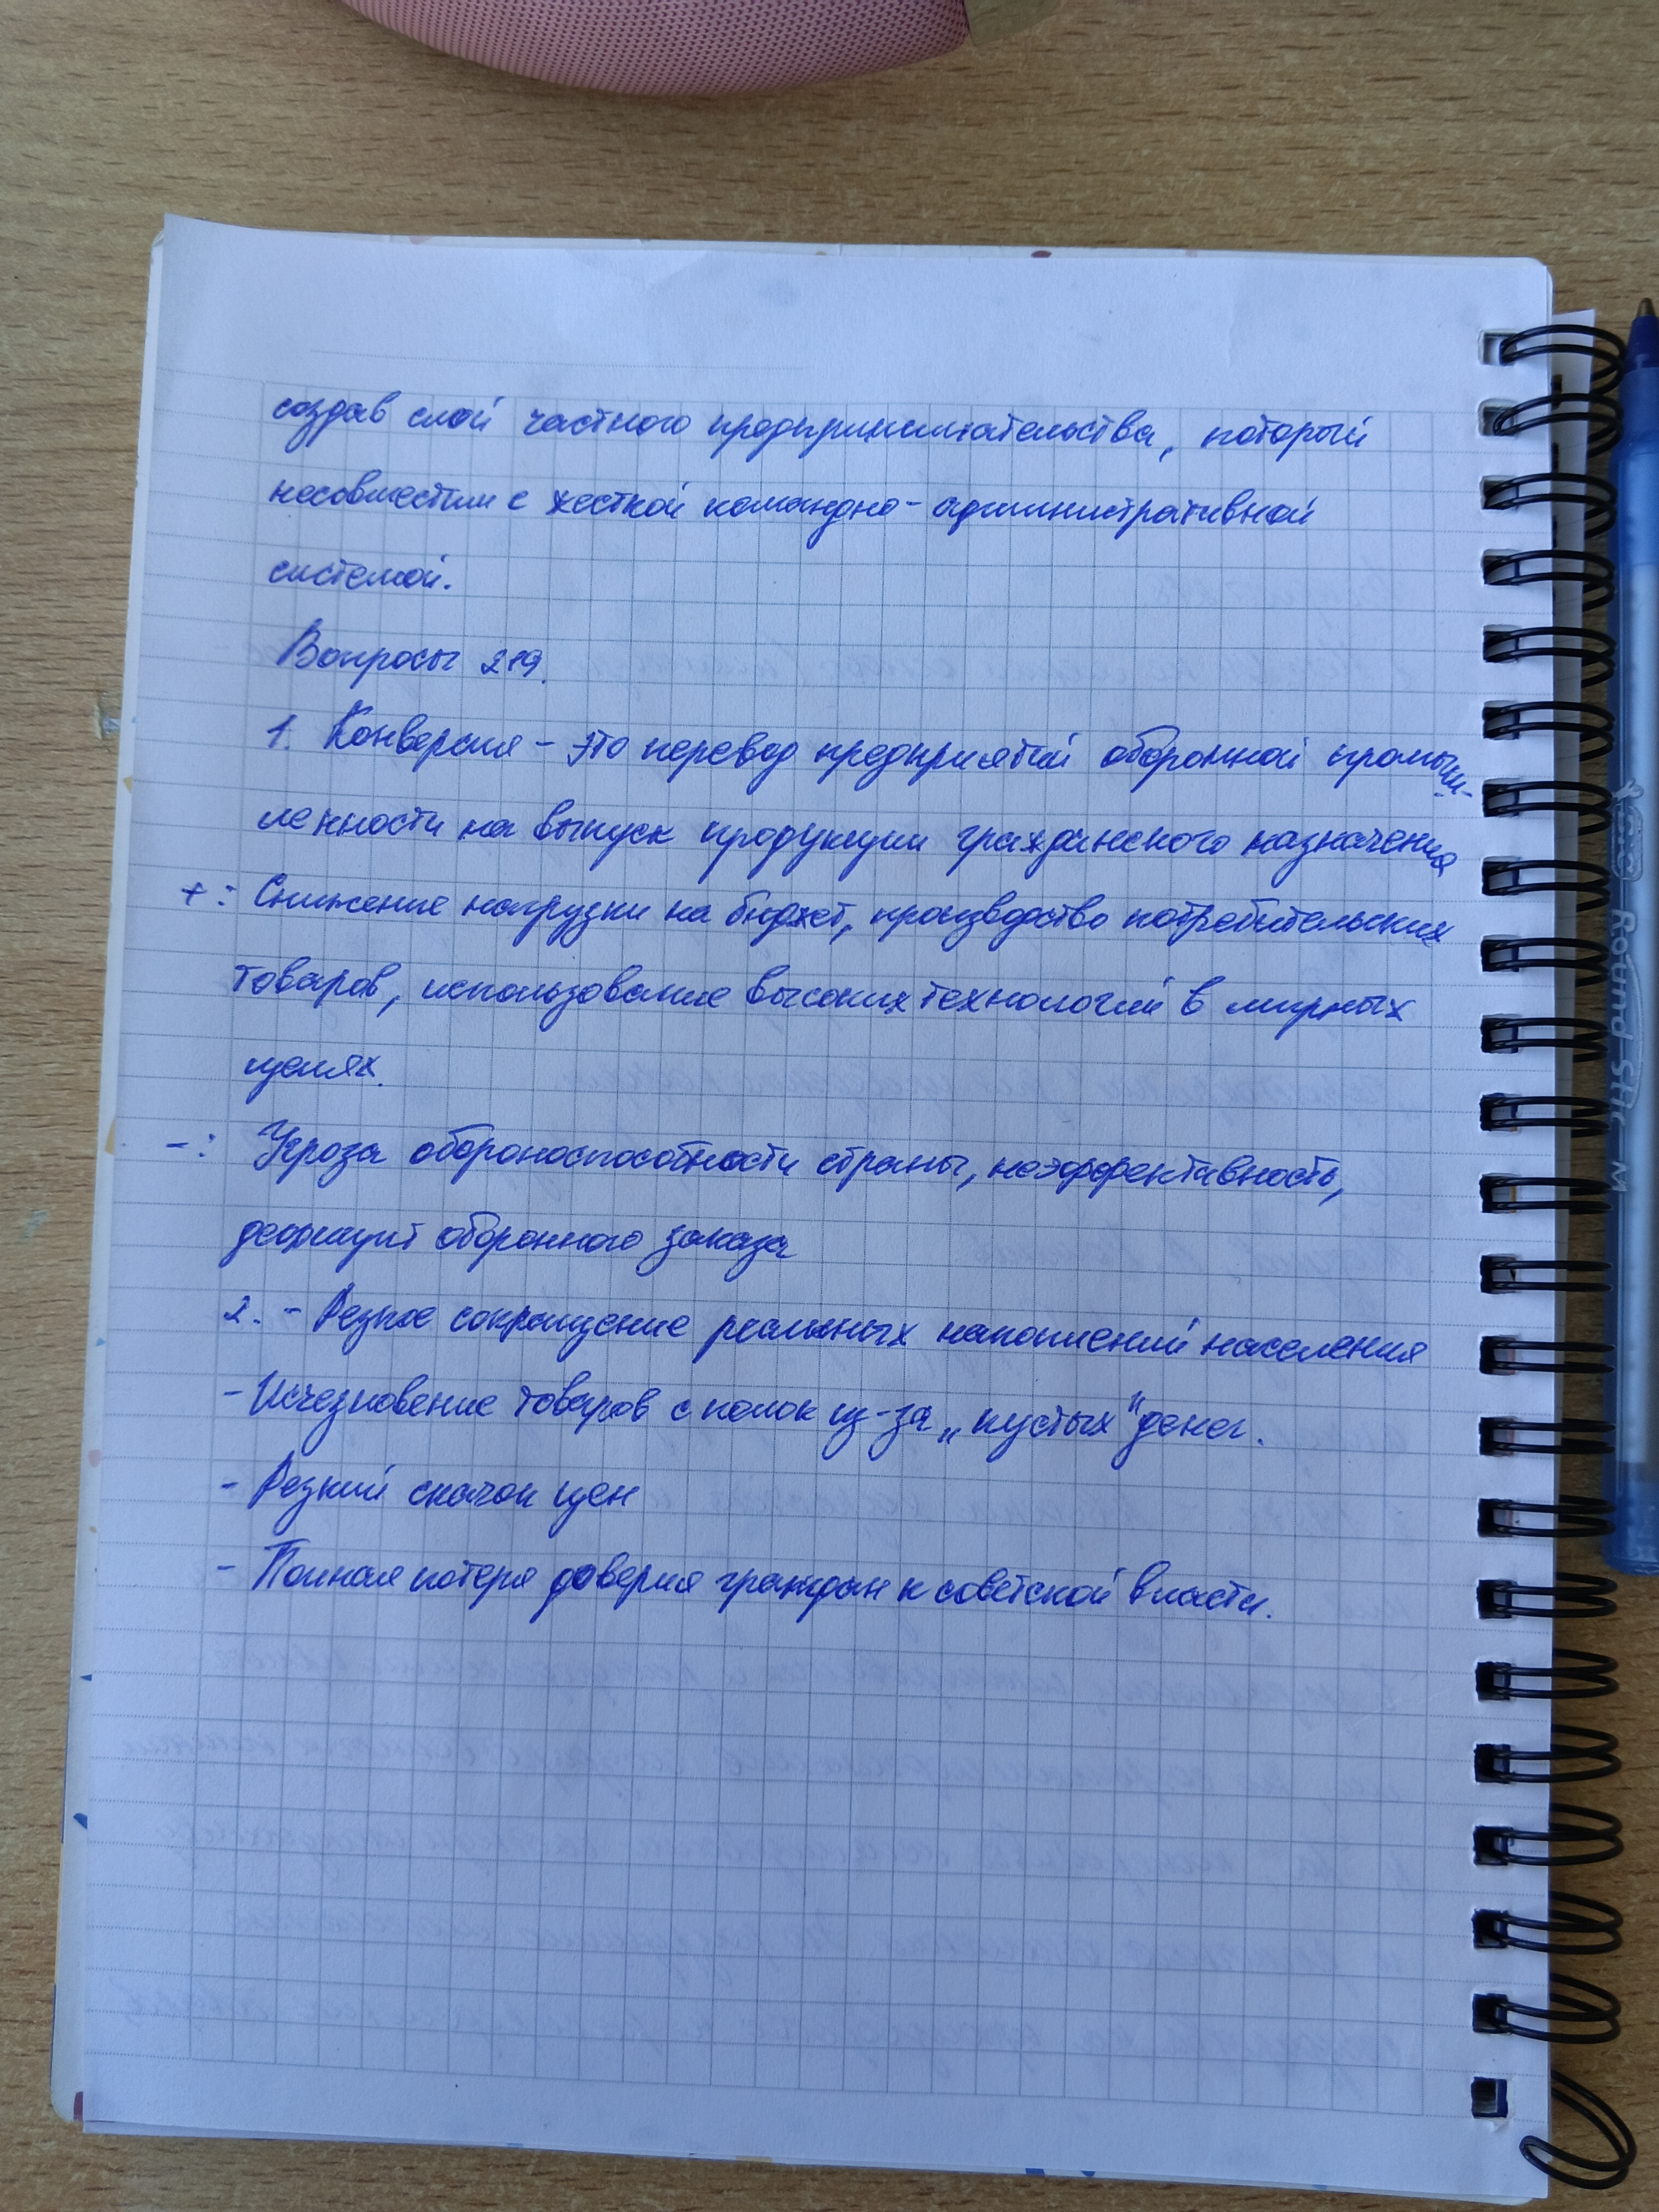 создав слой частного предпринимательства, который
несовместим с жесткой командно-административной
системой.
Вопросы 219.
1. Конверсия - это перевод предприятий оборонной промыш-
ленности на выпуск продукции гражданского назначения
+: Снижение нагрузки на бюджет, производство потребительских
товаров, использование высоких технологий в мирных
целях.
-: Угроза обороноспособности страны, неэффективность,
дефицит оборонного заказа
2. - Резкое сокращение реальных накоплений населения
- Исчезновение товаров с полок из-за „пустых" денег.
- Резкий скачок цен
- Полная потеря доверия граждан к советской власти.
Round Stic M